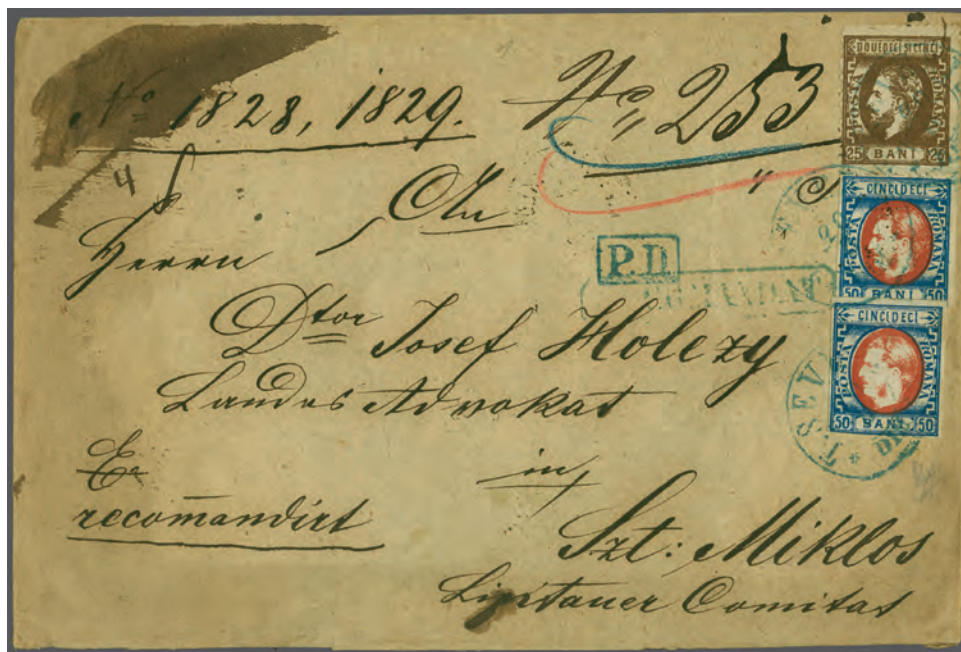 No 1828, 1829.
No, 253
4
An
Herrn
Dtor Josef Holezy
Landes Advokat
recom̄andirt
in
Szt: Miklos
Liptauer Comitat
P.D.
DOUEDECI SI CINCI
POSTA
ROMANA
25 BANI 25
CINCIDECI
POSTA
ROMANA
50 BANI 50
CINCIDECI
POSTA
ROMANA
50 BANI 50
T. SEV